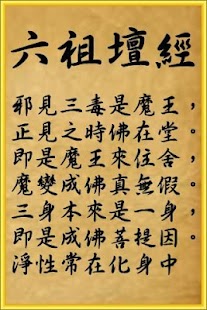 六祖壇經
邪見三毒是魔王，
正見之時佛在堂。
即是魔王來住舍，
魔變成佛真無假。
三身本來是一身，
即是成佛菩提因。
淨性常在化身中